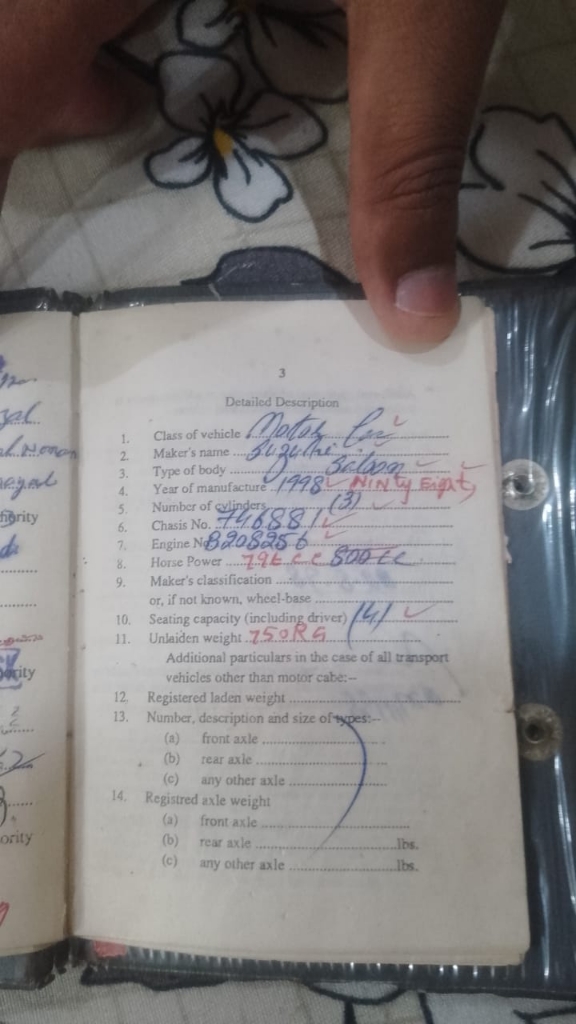 3
Detailed Description
1. Class of vehicle Motor Car
2. Maker's name Suzuki
3. Type of body Saloon
4. Year of manufacture 1998 NINty Eight
5. Number of cylinders (3)
6. Chasis No. 746881
7. Engine No 8208256
8. Horse Power 796 cc 800cc
9. Maker's classification
or, if not known, wheel-base
10. Seating capacity (including driver) (4)
11. Unlaiden weight 750KG
Additional particulars in the case of all transport
vehicles other than motor cabe:--
12. Registered laden weight
13. Number, description and size of types:--
(a) front axle
(b) rear axle
(c) any other axle
14. Registred axle weight
(a) front axle
(b) rear axle lbs.
(c) any other axle lbs.